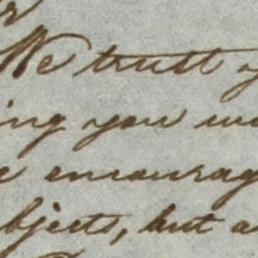 We trust y
ing you wo
e encourag
bjects, but a